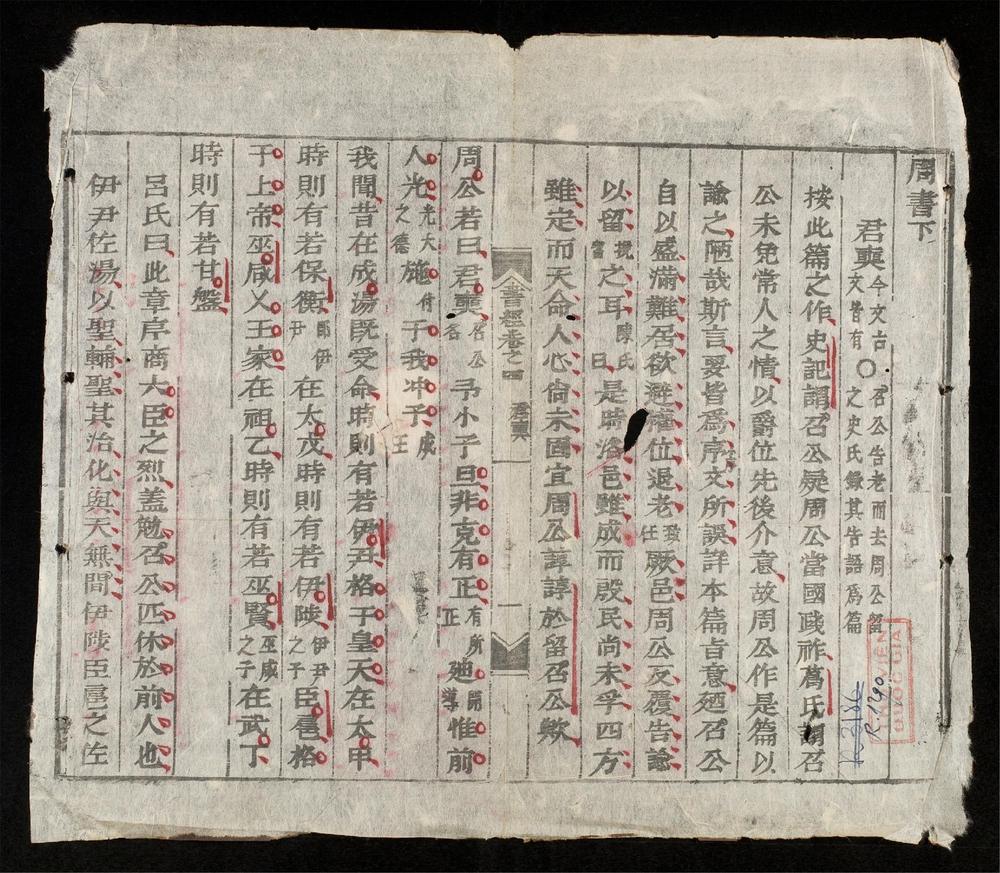 周書下
君奭今文古文皆有○召公告老而去周公留之史氏錄其告語爲篇
按此篇之作史記謂召公疑周公當國踐祚葛氏謂召
公未免常人之情以爵位先後介意故周公作是篇以
諭之陋哉斯言要皆爲序文所誤詳本篇旨意廼召公
自以盛滿難居欲避權位退老致仕厥邑周公反覆告諭
以留之耳陳氏曰是時洛邑雖成而殷民尚未孚四方
雖定而天命人心尙未固宜周公諄諄於留召公歟
書經卷之四 君奭
周公若曰君奭召公名予小子旦非克有正有所正廸開導惟前
人光光大之德施付于我冲子成王
我聞昔在成湯旣受命時則有若伊尹格于皇天在太甲
時則有若保衡卽伊尹在太戊時則有若伊陟伊尹之子臣扈格
于上帝巫咸乂王家在祖乙時則有若巫賢巫咸之子在武丁
時則有若甘盤
呂氏曰此章序商大臣之烈盖勉召公匹休於前人也
伊尹佐湯以聖輔聖其治化與天無間伊陟臣扈之佐
R.1290